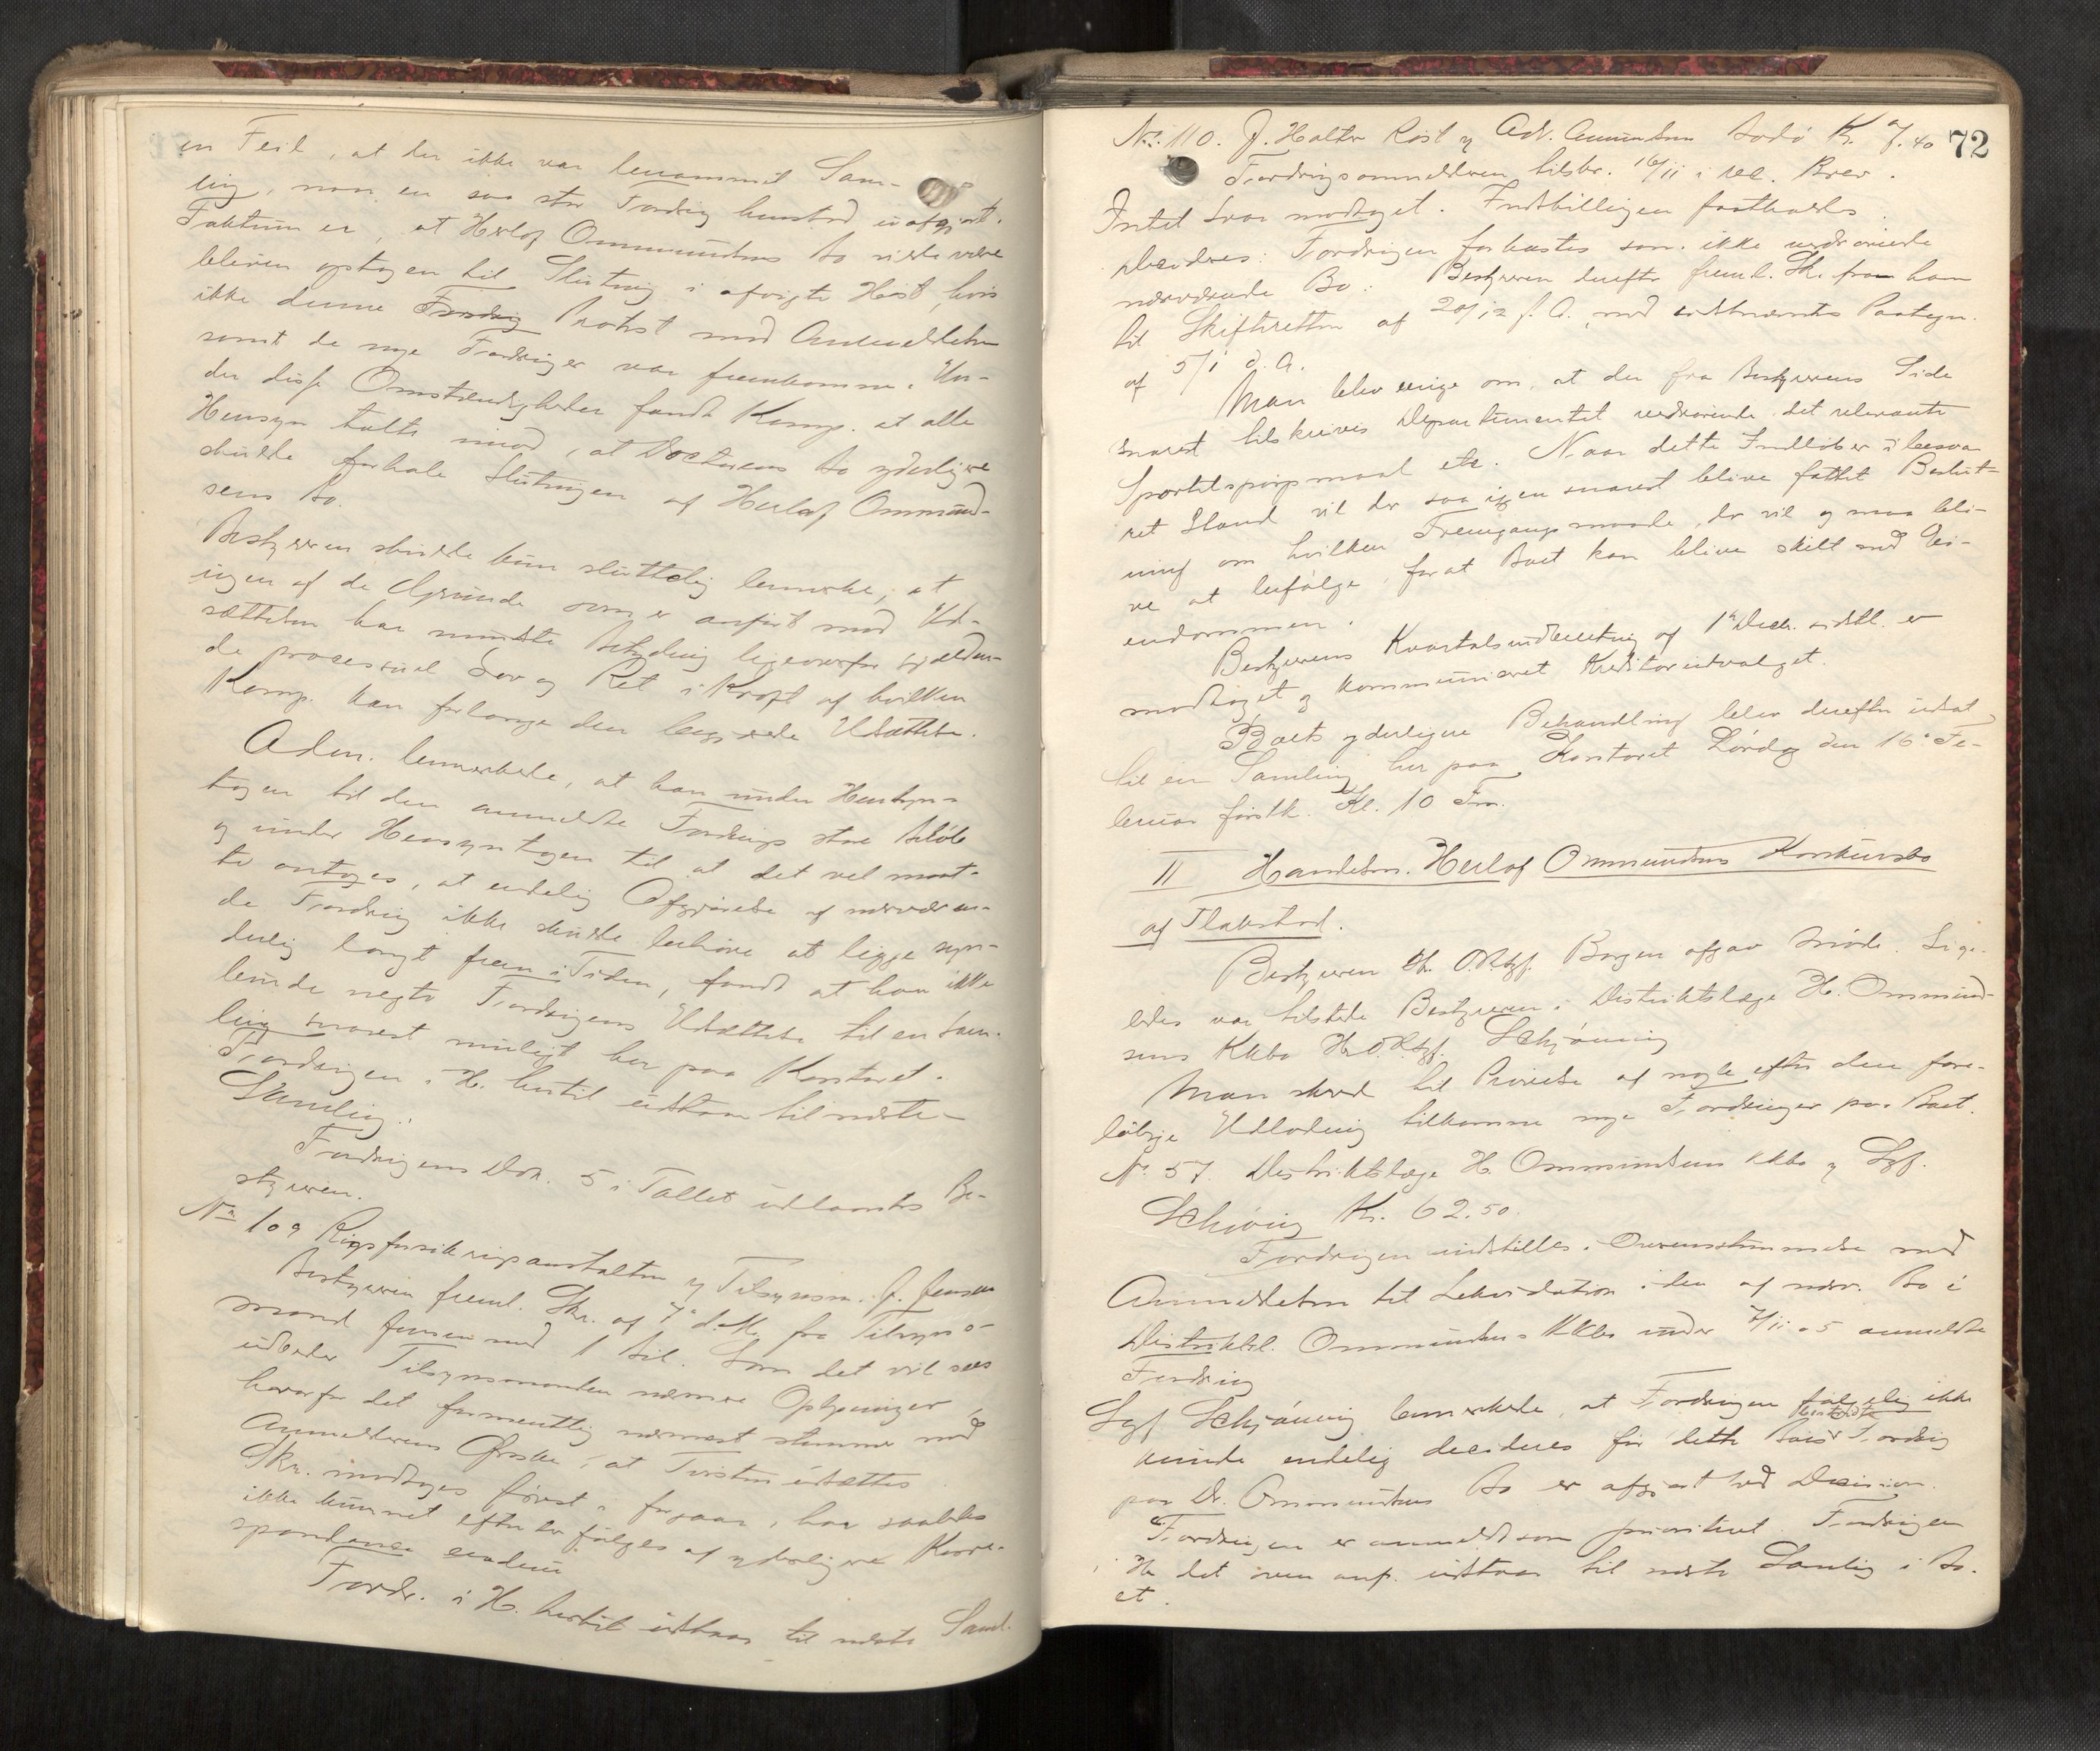 en Feil, at der ikke var berammet Sam-
ling, naar en saa stor Fordring henstod uafgjort.
Faktum er, at Herlof Ommundsens Bo vilde være
bleven optagen til Slutning i afvigte Høst, hvis
ikke denne Fordring Protest mod Anmeldelsen
samt de nye Fordringer var fremkomne. Un-
der disse Omstændigheder fandt Komp. at alle
Hensyn talte imod, at Doctorens Bo yderligere
skulde forhale Slutningen af Herlof Ommund-
sens Bo.
Bestyreren skulde kun sluttelig bemerke, at
ingen af de Grunde som er anført mod Ud-
sættelsen har mindste Betydning ligeoverfor gjælden-
de processuel Lov og Ret i Kraft af hvilken
Komp. kan forlange den begjærede Udsættelse.
Adm. bemerkede, at han under Hensyn-
tagen til den anmeldte Fordrings store Beløb
og under Hensyntagen til at det vel maat-
te antages, at endelig Afgjørelse af nærværen-
de Fordring ikke skulde behøve at ligge syn-
derlig langt frem i Tiden, fandt at han ikke
burde negte Fordringens Udsættelse til en Sam-
ling snarest muligt her paa Kontoret.
Fordringen i H. hertil udstaar til næste
Samling.
Fordringens Dok. 5 i Tallet udlaantes Be-
styreren.
No 109 Rigsforsikringsanstalten v Tilsynsm. J. Jensen
Bestyreren freml. Skr. af 7de d. M. fra Tilsyns-
mand Jensen med 1 Bil. Som det vil sees
udbeder Tilsynsmanden nærmere Oplysninger,
hvorfor det formentlig nærmest stemmer med
Anmelderens Ønske, at Tvisten udsættes
Skr. modtages først i forgaars, har saaledes
ikke kunnet efter følges af yderligere Korre-
spondance endnu
Fordr. i H. hertil udstaar til næste Saml.
72
No. 110. J. Halter Røst v Adv. Amundsen Bodø Kr. 7.40
Fordringsanmelderen tilskr. 16/11 i rec. Brev.
Intet Svar modtaget. Indstillingen fastholdes.
Decideres: Fordringen forkastes som ikke vedrørende
nærværende Bo. Bestyreren derefter freml. Skr. fra ham
til Skifteretten af 20/12 f. A. med sidstnævntes Paategn.
af 5/1 d. A.
Man blev enige om, at der fra Bestyrerens Side
snarest tilskrives Departementet vedrørende det relevante
Sportelspørgsmaal etc. Naar dette Indløber i besva-
ret Stand vil der saa igjen snarest blive fattet Beslut-
ning om hvilken Fremgangsmaade, der vil og maa bli-
ve at befølge, for at Boet kan blive skilt ved Ei-
endommen.
Bestyrerens Kvartalsindberetning af 1ste Decbr. sidstl. er
modtaget og kommuniceret Kreditorudvalget.
Boets yderligere Behandling blev derefter udsat
til en Samling her paa Kontoret Lørdag den 16de Fe-
bruar førstk. Kl. 10 Fm.
II Handelsm. Herlof Ommundsens Konkursbo
af Flakstad.
Bestyreren Hr. O.R.Sgf. Bogen afgav Møde. Lige-
ledes var tilstede Bestyreren i Distriktslæge H. Ommund-
sens Kkbo Hr. O.R.Sgf. Schjøning
Man skred til Prøvelse af nogle efter den fore-
løbige Udlodning tilkomne nye Fordringer paa Boet.
No. 57. Distriktslæge H. Ommundsens Kkbo v Sgf.
Schjøning Kr. 62.50.
Fordringen indstilles i Overensstemmelse med
Anmeldelsen til Likvidation i den af nærv. Bo i
Distriktsl. Ommundsens Kkbo under 7/11 05 anmeldte
Fordring
Sgf Schjøning bemerkede, at Fordringen følgelig ikke
kunde endelig decideres før dette Bos bestridte Fordring
paa Dr. Ommundsens Bo er afgjort ved Decision.
Fordringen er anmeldt som prioriteret. Fordringen
i H. det oven anf. udstaar til næste Samling i Bo-
et.